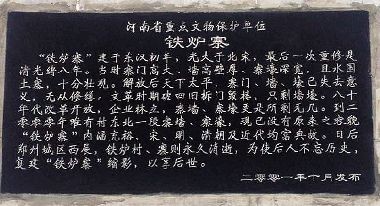 河南省重点文物保护单位
铁炉寨
“铁炉寨”建于东汉初年，尤大于北宋，最后一次重修是
清光绪八年。当时寨门高大、墙高壁厚、寨壕深宽，且水围
土寨，十分壮观。解放后天下太平，寨门、墙、壕已失去意
义，无从修缮，文革时期砖四旧拆门毁楼，只剩墙壕。八十
年代改革开放，企业林立，寨墙、寨壕更是所剩无几。到二
零零零年唯有村东北一段寨墙、寨壕，现已没有原来之容貌
“铁炉寨”内涵充裕，宋、明、清朝及近代均宫典故。日后
郑州城区西展，铁炉村、寨则永久消逝，为使后人不忘历史，
复建“铁炉寨”缩影，以享后世。
二零零一年 月发布